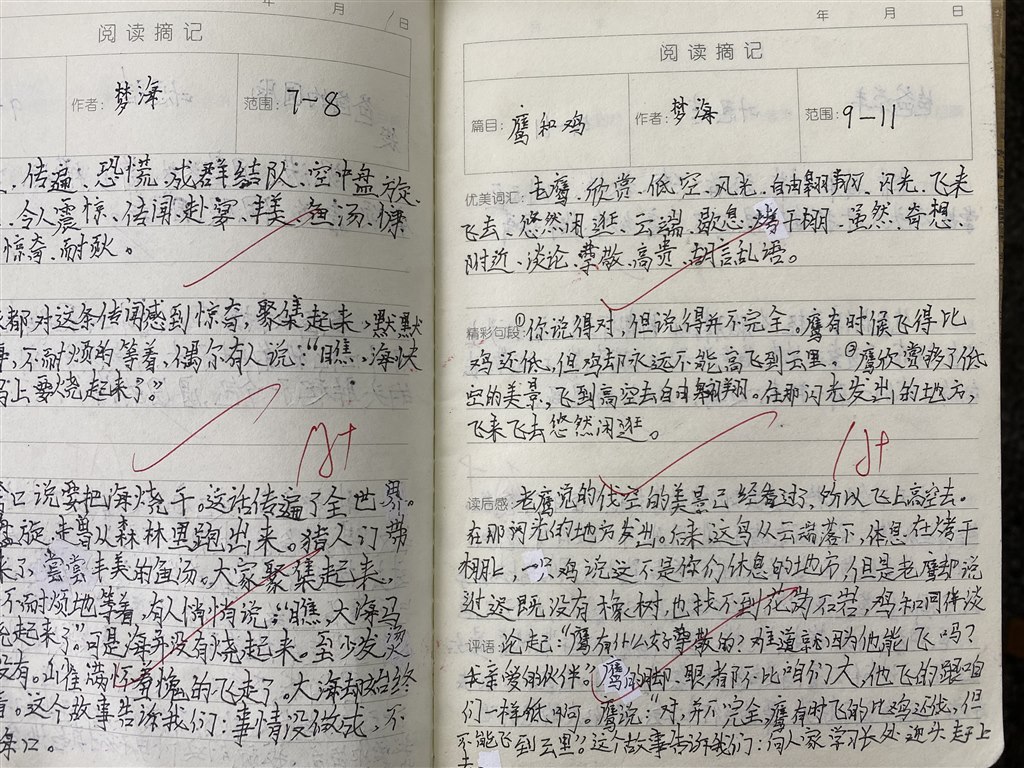 年 月 1日
阅读摘记
作者：梦海
范围：7-8
、传遍、恐慌、成群结队、空中盘旋、
、令人震惊、传闻、赴宴、丰美、鱼汤、
惊奇、耐烦。
都对这条传闻感到惊奇，聚集起来，默默
，不耐烦的等着，偶尔有人说：“瞧，海快
马上要烧起来了”
A+
口说要把海烧干。这话传遍了全世界。
盘旋，走兽从森林里跑出来。猎人们带
来了，尝尝丰美的鱼汤。大家聚集起来，
不耐烦地等着，有人悄悄说：“瞧，大海马
起来了”可是海并没有烧起来。至少发烫
没有。山雀满怀羞愧的飞走了。大海却始终
着。这个故事告诉我们：事情没做成，不
口。
年 月 日
阅读摘记
篇目：鹰和鸡
作者：梦海
范围：9-11
优美词汇：老鹰、欣赏、低空、风光、自由翱翔、闪光、飞来
飞去、悠然闲逛、云端、歇息、烤干棚、虽然、奇想、
附近、谈论、尊敬、高贵、胡言乱语。
精彩句段：①你说得对，但说得并不完全。鹰有时候飞得比
鸡还低，但鸡却永远不能高飞到云里。②鹰欣赏够了低
空的美景，飞到高空去自由翱翔。在那闪光发出的地方，
飞来飞去悠然闲逛。
A+
读后感：老鹰觉的低空的美景已经看过了，所以飞上高空去。
在那闪光的地方发出。后来这鸟从云端落下，休息在烤干
棚上，一只鸡说这不是你们休息的地方，但是老鹰却说
过这既没有橡树，也找不到花岗石岩，鸡和同伴谈
评语：论起：“鹰有什么好尊敬的？难道就因为他能飞吗？
我亲爱的伙伴。”鹰的脚、眼都不比咱们大，他飞的跟咱
们一样低啊。鹰说：“对，并不完全，鹰有时飞的比鸡还低，但
不能飞到云里”。这个故事告诉我们：向人家学习长处，迎头赶上
去。